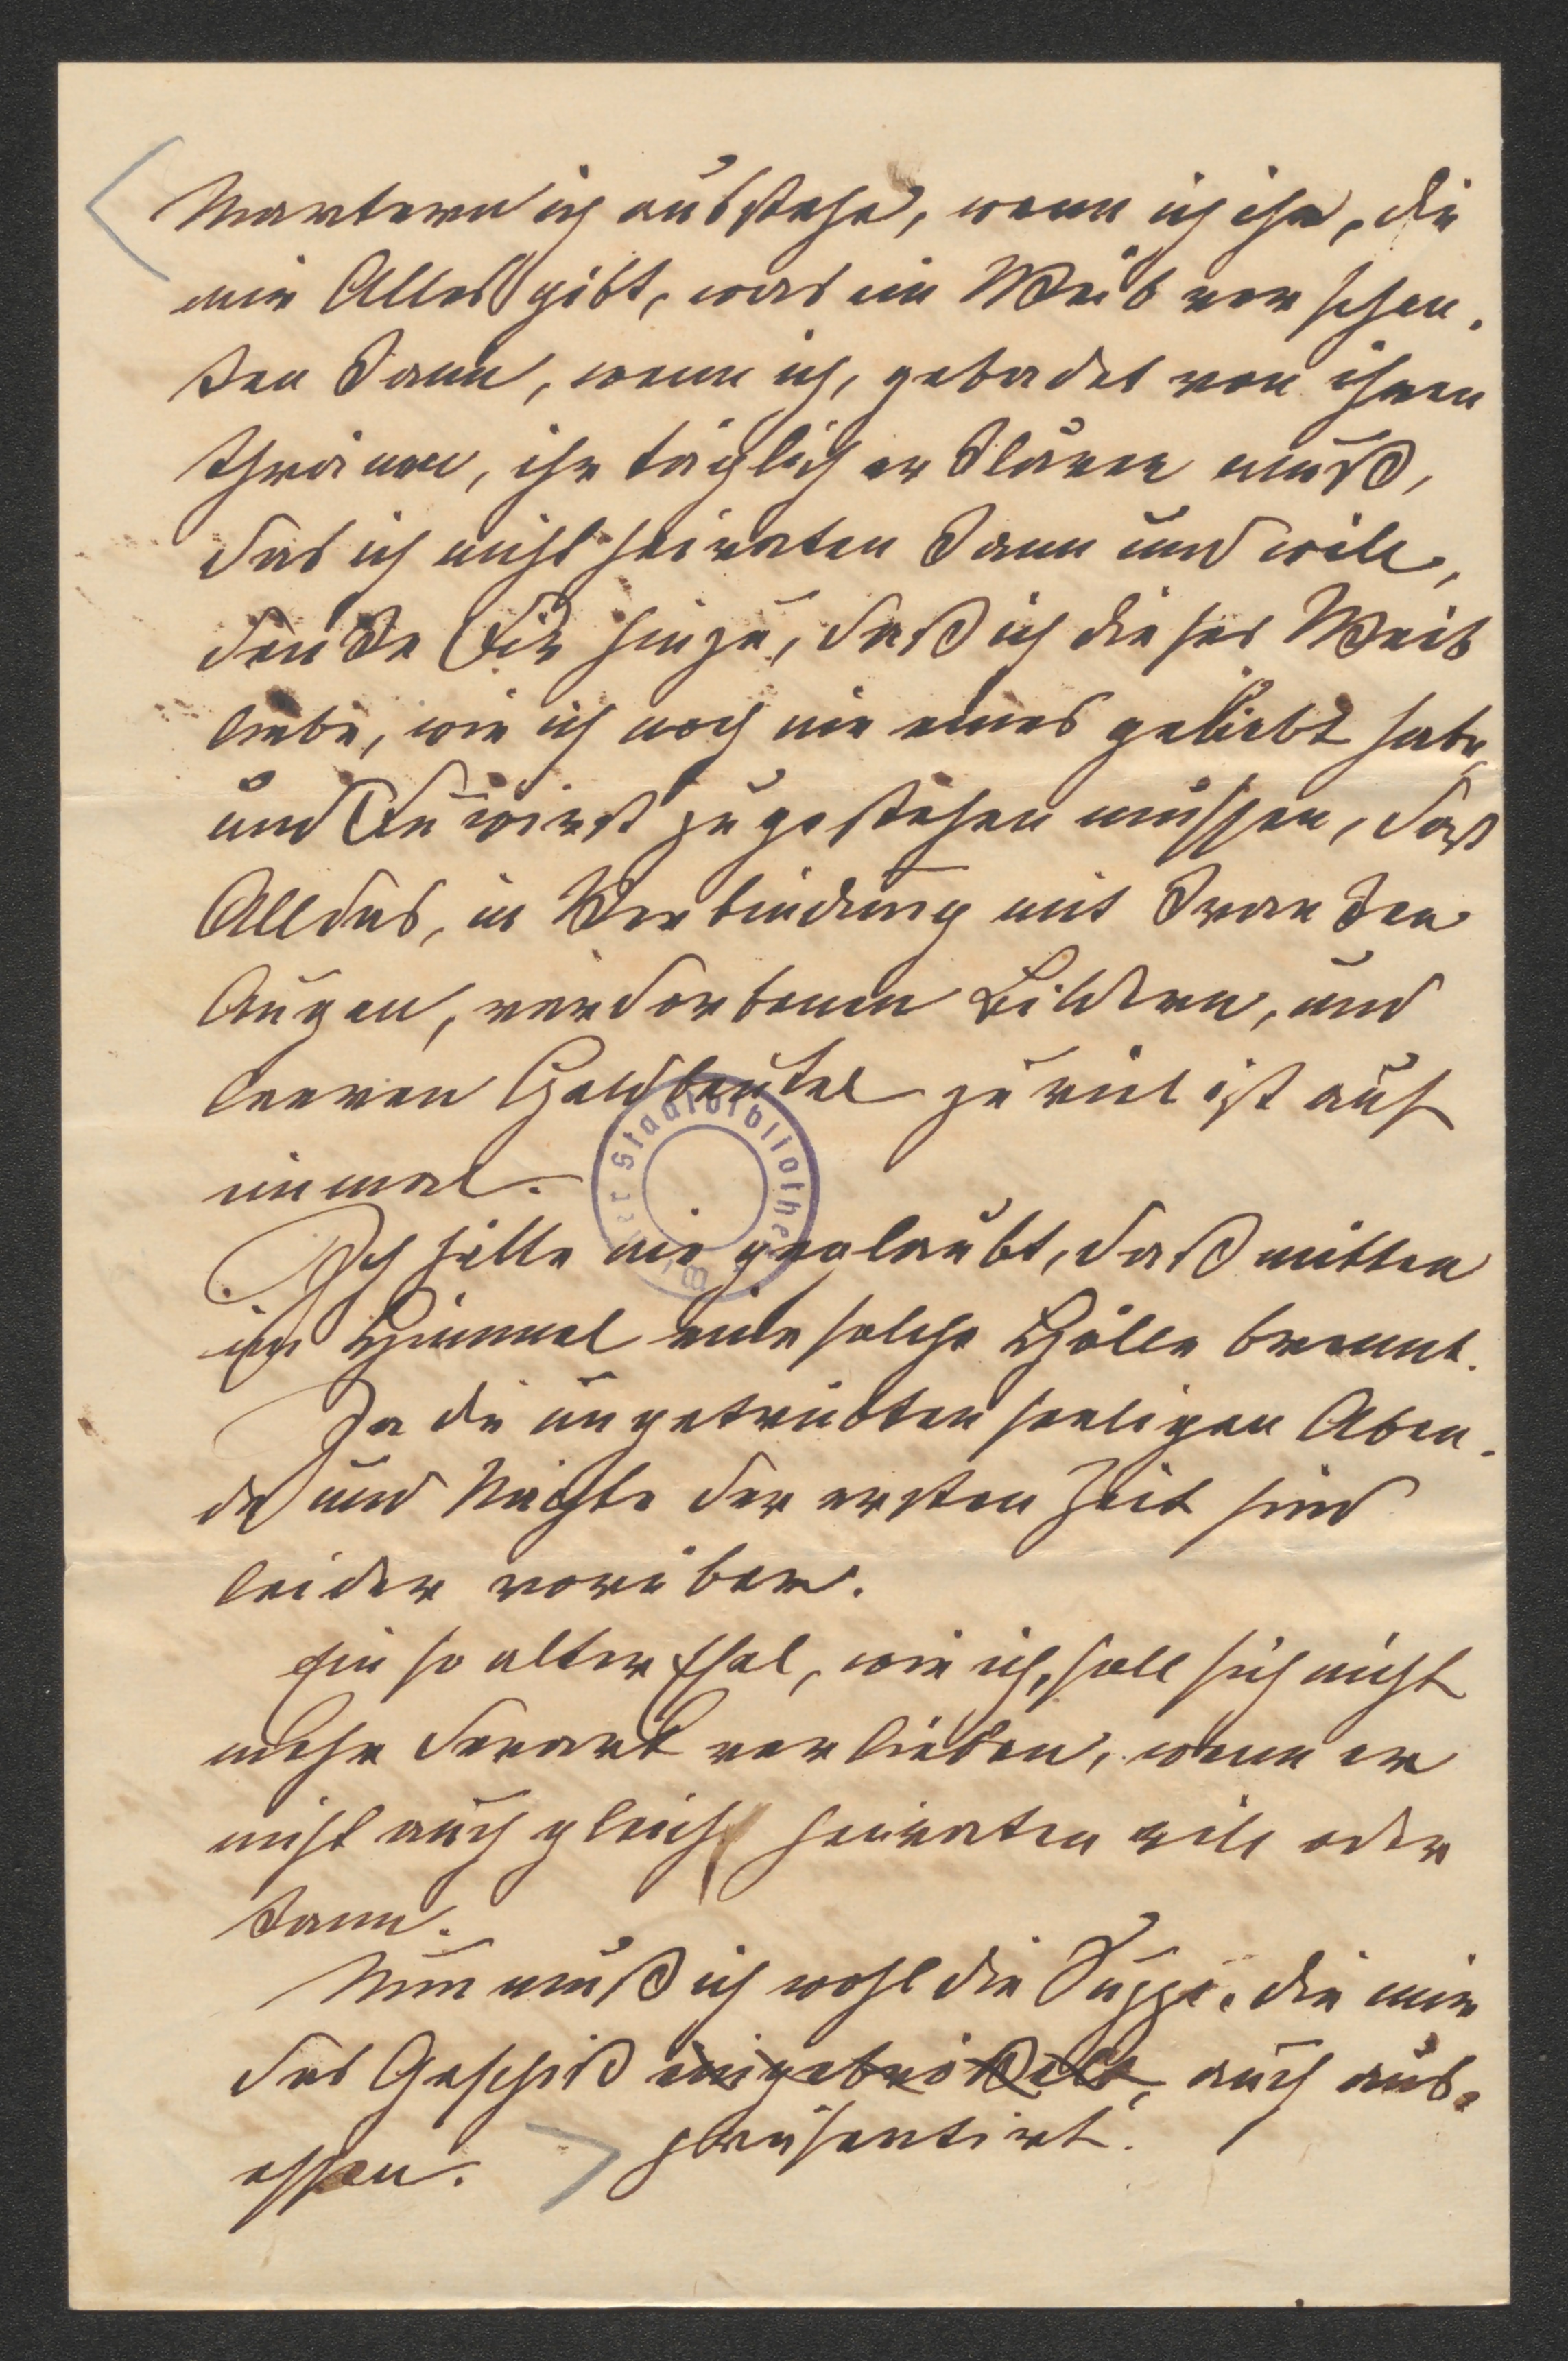 Martern ich ausstehe, wenn ich ihr, die
mir Alles gibt, was ein Weib verschen-
ken kann, wenn ich, gebadet von ihren
Thränen, ihr täglich erklären muß,
das ich nicht heiraten kann und will,
denke Dir hinzu, daß ich dieses Weib
liebe, wie ich noch nie eines geliebt habe,
und Du wirst zugestehen müssen, daß
Alldas, in Verbindung mit kranken
Augen, verdorbenen Bildern, und
leeren Geldbeutel zu viel ist auf
einmal.
Ich hätte nie geglaubt, daß mitten
im Himmel eine solche Hölle brennt.
Ja die ungetrübten seeligen Aben-
de und Nächte der ersten Zeit sind
leider vorüber.
Ein so alter Esel, wie ich, soll sich nicht
mehr derart verlieben, wenn er
nicht auch gleich heiraten will oder
kann.
Nun muß ich wohl die Suppe, die mir
das Geschick eingebrökelt, auch aus-
essen. präsentirt.
er Stadtbibliothe